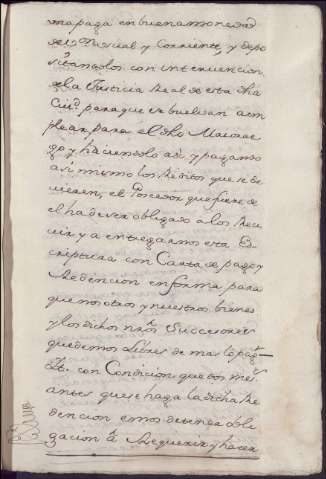 ma paga en buena moneda
de Usual y Corriente, y depo
sitandolos con intervencion
de la Justicia Real de esta dha
Ciud. para que se buelvan a em
plear para el dho Maioraz
go y haciendolo asi, y pagando
asi mismo los Reditos que se de
vieren, el Posedor que fuere de
el ha de ser obligado a los Reci
vir y a entregarnos esta Es
criptura con Carta de pago y
Redencion en forma para
que nosotros y nuestros bienes
y los dichos nros. Succesores
quedemos Libres de mas la paga
Yt. con Condicion que dos mes.
antes que se haga la dicha Re
dencion emos de ser de obli
gacion de Requerir y hacer